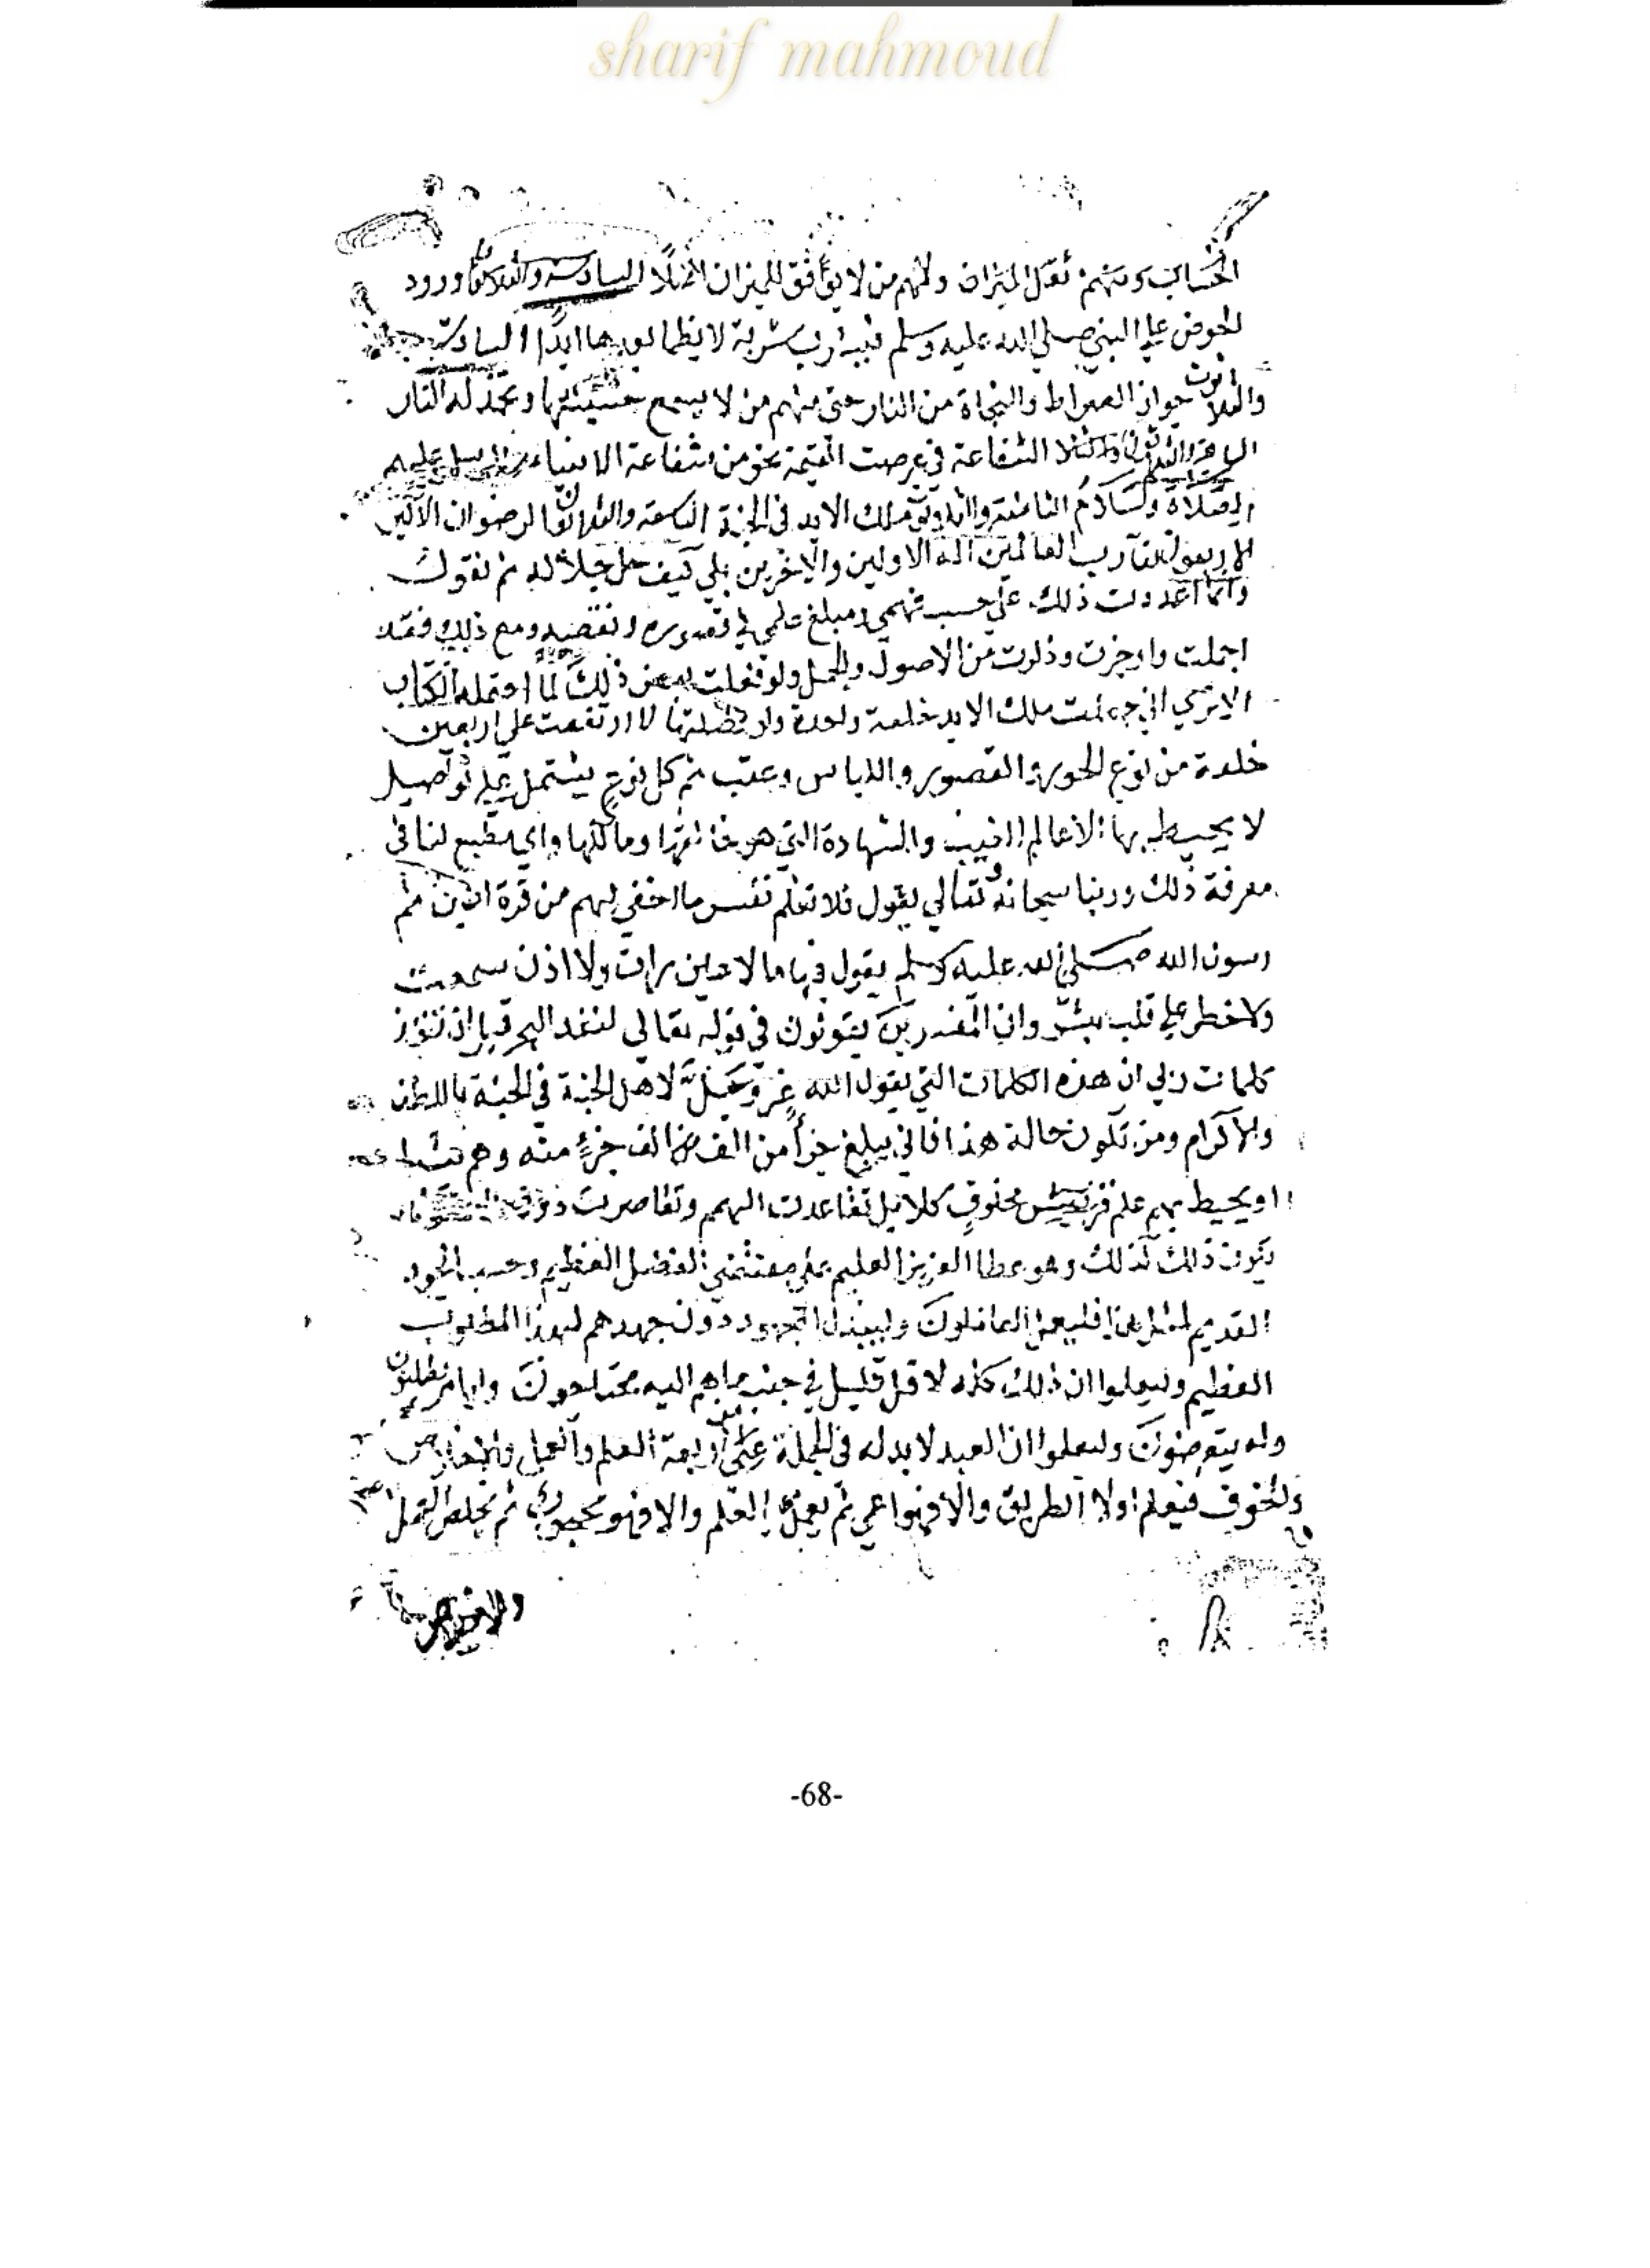 sharif mahmoud
الحساب ومنهم ثقل الميزان ومنهم من لا يوافق للميزان اصلا السادسة والثلاثون ورود
الحوض على النبي صلى الله عليه وسلم فيشرب شربة لا يظما بعدها ابدا
والثلاثون جواز الصراط والنجاة من النار حتى منهم من لا يسمع حسيسها وتخمد له النار
الشفاعة في عرصت القيمة نحو من شفاعة الانبياء عليهم
الصلاة والسلام الثامنة والثلاثون ملك الابد في الجنة التاسعة والثلاثون الرضوان الاكبر
الاربعون لقآ رب العالمين اله الاولين والاخرين بلى كيف جل جلاله ثم نقول
وانما اعددت ذلك على حسب فهمي ومبلغ علمي في ومع ذلك فقد
اجملت واوجزت وذكرت من الاصول والجمل ولو فصلت بعض ذلك لما احتمله الكتاب
الا ترى اني جعلت ملك الابد خلعة واحدة ولو فصلتها لا ارتفعت على اربعين
خلعة من نوع الحور والقصور واللباس ثم كل نوع يشتمل على تفاصيل
لا يحيط بها الا عالم الغيب والشهادة الذي هو خالقها ومالكها واي مطمع لنا في
معرفة ذلك وربنا سبحانه وتعالى يقول فلا تعلم نفس ما اخفي لهم من قرة اعين ثم
رسول الله صلى الله عليه وسلم يقول فيها ما لا عين رات ولا اذن سمعت
ولا خطر على قلب بشر وان المفسرين يقولون في قوله تعالى لنفد البحر قبل ان تنفد
كلمات ربي ان هذه الكلمات التي يقول الله عز وجل لاهل الجنة في الجنة باللطف
والاكرام ومن تكون حالة هذا فاني يبلغ جزأ من الف الف جزء منه وهم
او يحيط بهم علم مخلوق كلا بل تقاعدت الهمم وتقاصرت دونه
يكون ذلك كذلك وهو عطا العزيز العليم على مقتضى الفضل العظيم وحسب الجود
القديم لمثل هذا فليعمل العاملون وليبذل المجهود دون جهدهم لهذا المطلوب
العظيم وليعلموا ان ذلك كله لاقل قليل في جنب ما هم اليه محتاجون واياه يطلبون
وله يتعرضون وليعلموا ان العبد لا بد له في الجملة من اربعة العلم والعمل والاخلاص
والخوف فيعلم اولا الطريق والا فهو اعمى ثم يعمل بالعلم والا فهو محجوب ثم يخلص العمل
والاخلاص
-68-